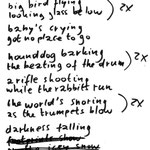 big bird flying
looking glass below ) 2x
baby's crying
got no place to go
hounddog barking ) 2x
the beating of the drum
a rifle shooting
while the rabbit run
the world's snoring ) 2x
as the trumpets blow
darkness falling